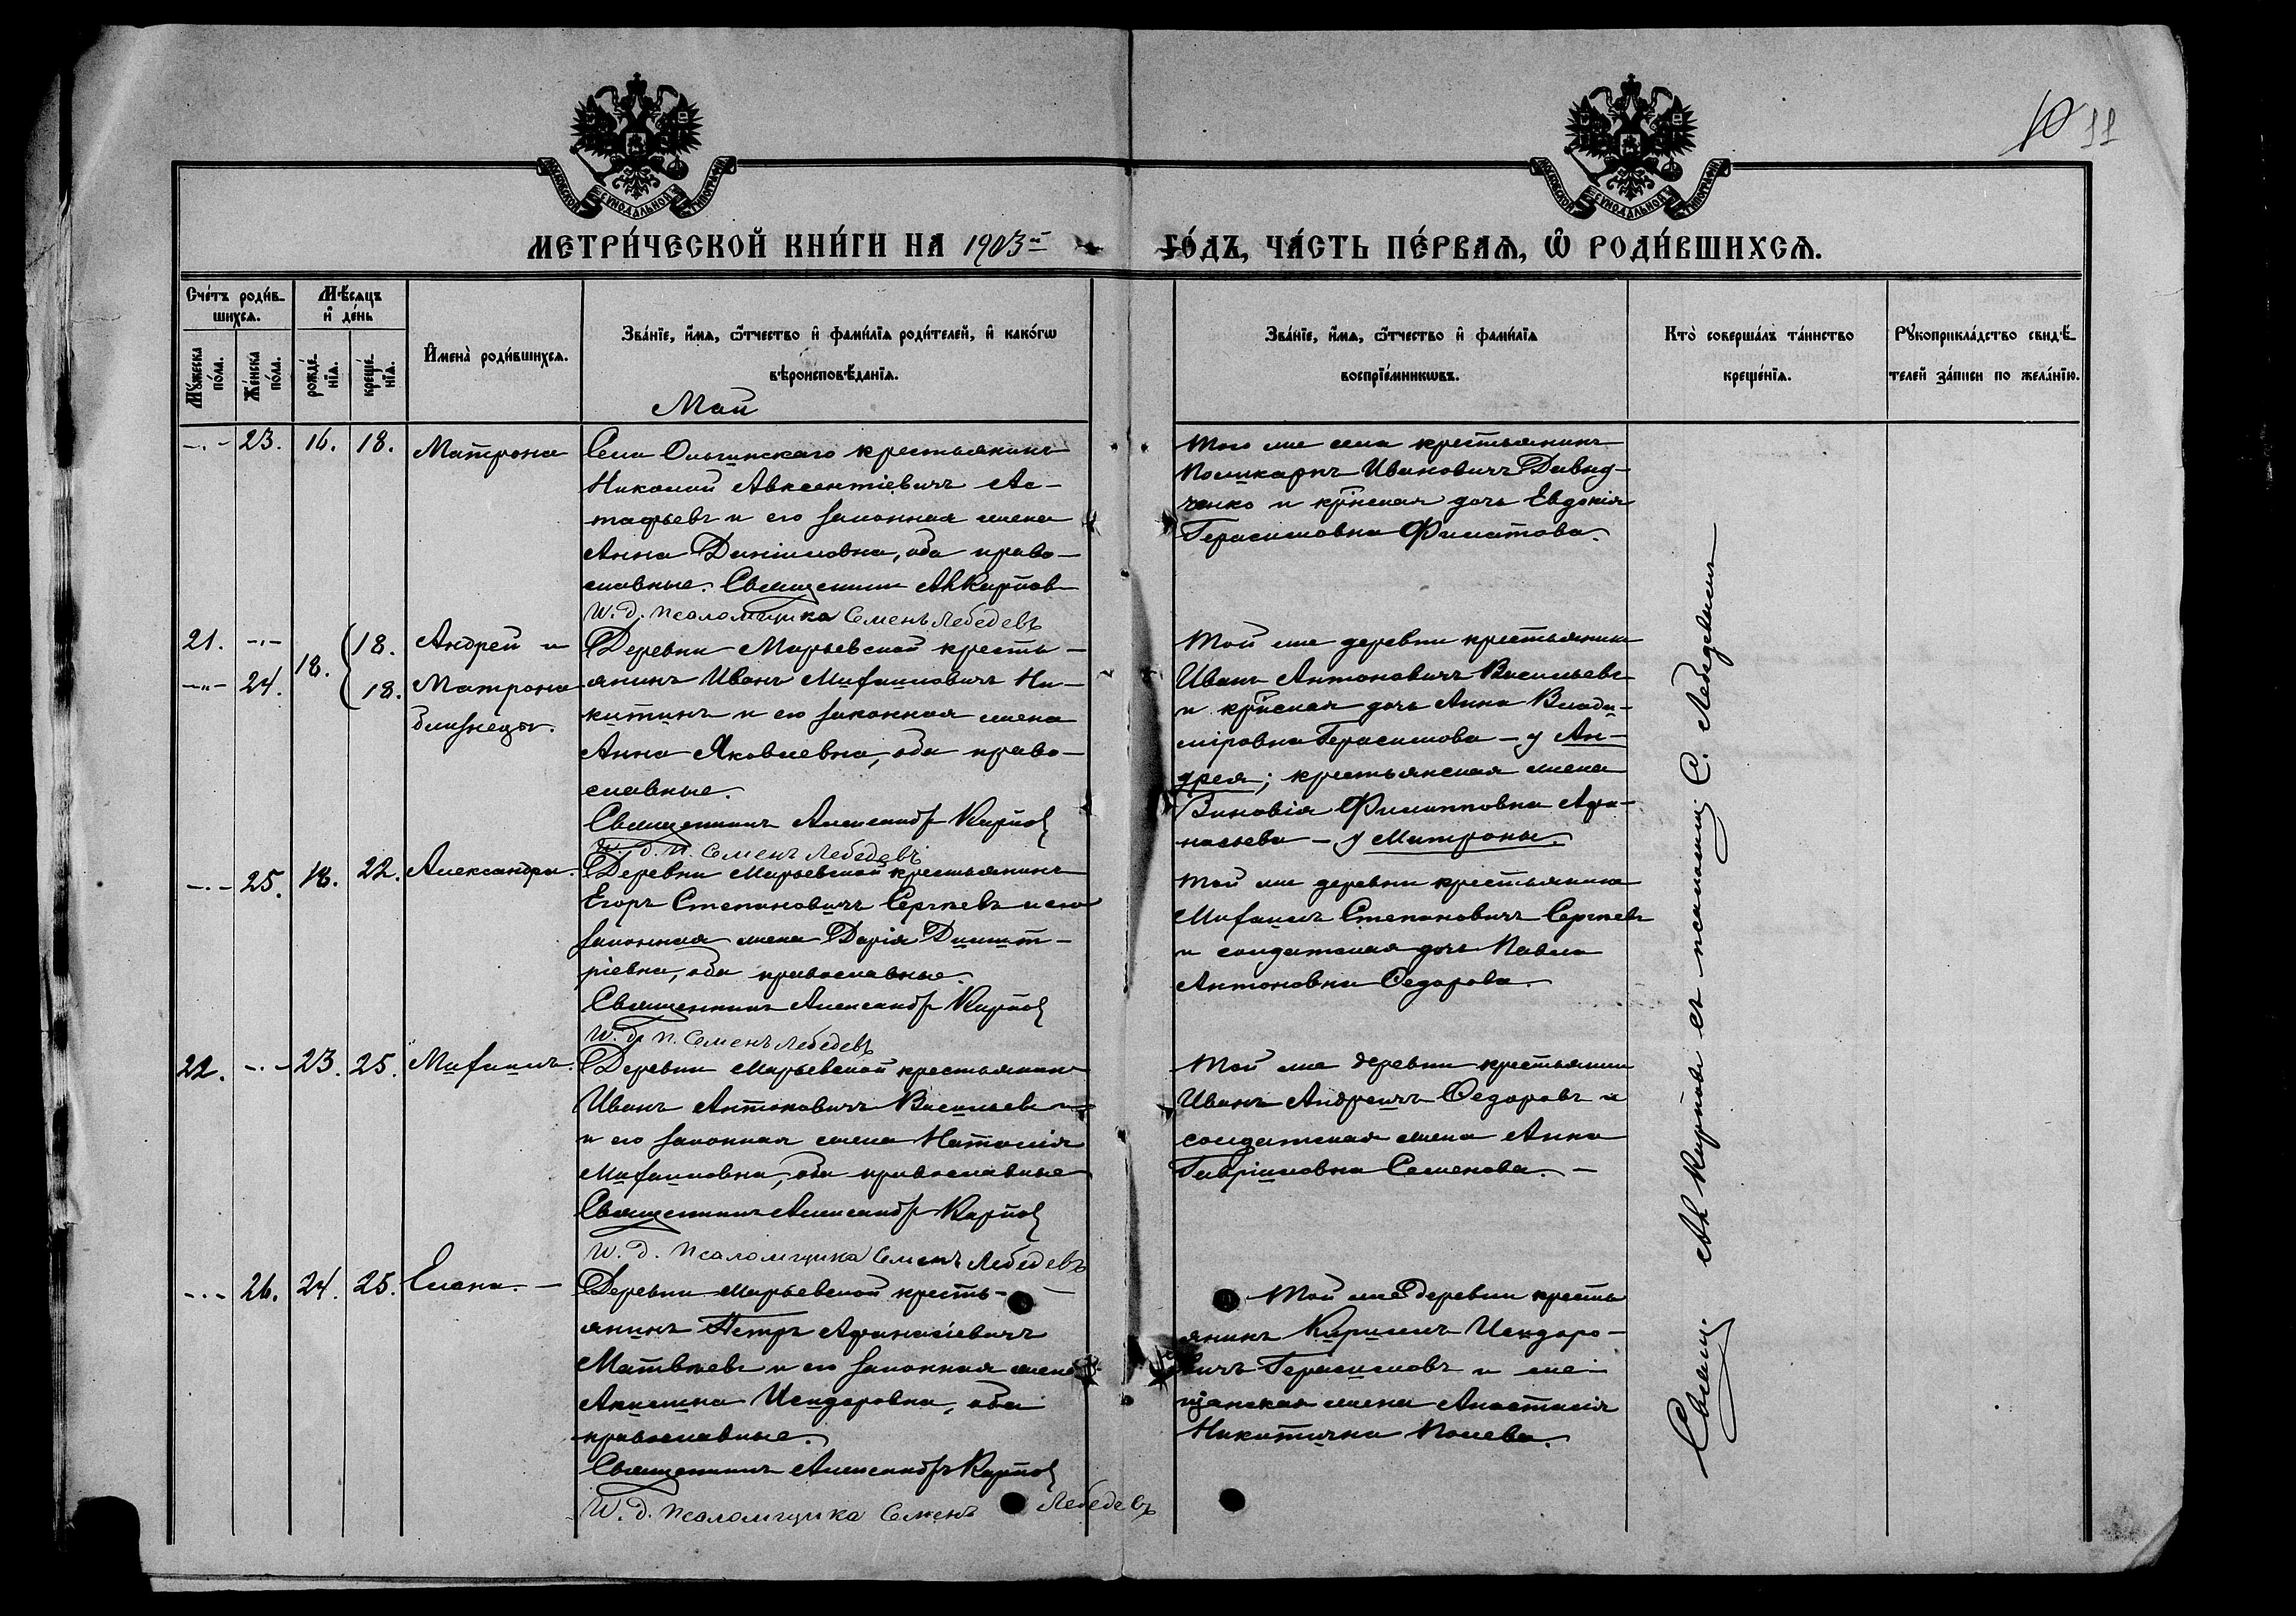 10 11
МОСКОВСКОЙ СѴНОДАЛЬНОЙ ТИПОГРАФІИ
МОСКОВСКОЙ СѴНОДАЛЬНОЙ ТИПОГРАФІИ
МЕТРИ́ЧЕСКОЙ КНИ́ГИ НА 1903й ГО́ДЪ, ЧА́СТЬ ПЕ́РВАѦ, Ѡ҆ РОДИ́ВШИХСѦ.
Сче́тъ роди́в-
шихсѧ.
Мѣ́сяцъ
и҆ де́нь
Мꙋ́жеска по́ла.
Же́нска по́ла.
рожде́-
нїѧ.
креще́-
нїѧ.
И҆мена̀ роди́вшихсѧ.
Зва́нїе, и҆́мѧ, ѻ҆́тчество и҆ фами́лїѧ роди́телей, и҆ како́гѡ
вѣроисповѣ́данїѧ.
Зва́нїе, и҆́мѧ, ѻ҆́тчество и҆ фами́лїѧ
воспрїе́мникѡвъ.
Кто̀ соверша́лъ та́инство
креще́нїѧ.
Рꙋкоприкла́дство свидѣ́-
телей за́писи по жела́нїю.
Май
-.- 23. 16. 18. Матрона
Села Ольгинскаго крестьянинъ
Николай Авксентіевичъ Ас-
тафьевъ и его законная жена
Анна Даніиловна, оба право-
славные. Священникъ Ал Карпов
И. д. псаломщика Семенъ Лебедевъ
Того же села крестьянинъ
Поликарпъ Ивановичъ Давид-
ченко и кр῀нская дочь Евдокія
Герасимовна Филатова.
21. -.- 18. 18. Андрей и
-„- 24. 18. Матрона
близнецы.
Деревни Марьевской кресть-
янинъ Иванъ Михаиловичъ Ни-
китинъ и его законная жена
Анна Яковлевна, оба право-
славные.
Священникъ Александръ Карпов
И. д. п. Семенъ Лебедевъ
Той же деревни крестьянинъ
Иванъ Антоновичъ Васильевъ
и кр῀нская дочь Анна Влади-
міровна Герасимова - у Ан-
дрея; крестьянская жена
Зиновія Филипповна Афа-
насьева - у Матроны.
-.- 25. 18. 22. Александра.
Деревни Марьевской крестьянинъ
Егоръ Степановичъ Сергѣевъ и его
законная жена Дарія Димит-
ріевна, оба православные.
Священникъ Александръ Карпов
И. д. п. Семенъ Лебедевъ
Той же деревни крестьянинъ
Михаилъ Степановичъ Сергѣевъ
и солдатская дочь Павла
Антоновна Ѳедорова.
22. -.- 23. 25. Михаилъ.
Деревни Марьевской крестьянинъ
Иванъ Антоновичъ Васильевъ
и его законная жена Наталія
Михаиловна, оба православные
Священникъ Александръ Карпов
И. д. псаломщика Семенъ Лебедевъ
Той же деревни крестьянинъ
Иванъ Андреичъ Ѳедоровъ и
солдатская жена Анна
Гавріиловна Семенова. -
-.- 26. 24. 25. Елена. -
Деревни Марьевской кресть-
янинъ Петръ Афанасіевичъ
Матвѣевъ и его законная жена
Акилина Исидоровна, оба
православные.
Священникъ Александръ Карпов
И. д. псаломщика Семенъ Лебедевъ
Той же деревни кресть
янинъ Кириллъ Исидоро-
вичъ Герасимовъ и мѣ-
щанская жена Анастасія
Никитична Полева.
Свящ. Ал Карповъ съ псаломщ. С. Лебедевымъ